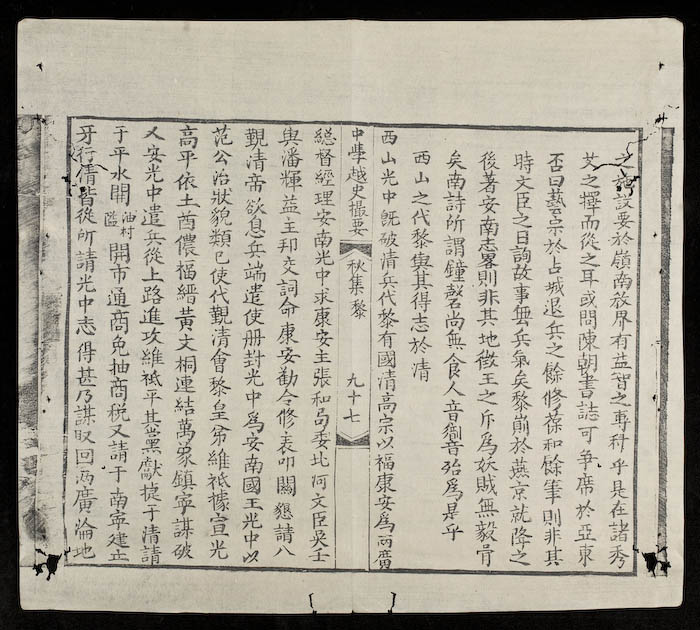 之設要於嶺南放界有益智之專科乎是在諸秀
艾之擇而從之耳或問陳朝書誌可爭席於亞東
否曰藝宗於占城退兵之餘修葆和餘筆則非其
時文臣之日詢故事無兵氣矣黎崱於燕京就降之
後著安南志畧則非其地徵王之斥爲妖賊無毅骨
矣南詩所謂鐘磬尚無食人音音殆爲是乎
西山之代黎與其得志於清
西山光中旣破清兵代黎有國清高宗以福康安爲兩廣
中學越史撮要 秋集黎 九十七
總督經理安南光中求康安主張和局委北河文臣吳壬
與潘輝益主邦交詞命康安勸令修表叩關懇請入
覲清帝欲息兵端遣使册封光中爲安南國王光中以
范公治狀貌類已使代覲清會黎皇弟維祗據宣光
高平依土酋儂福縉黃文桐連結萬象鎮寧謀破
乂安光中遣兵從上路進攻維祗平其黨獻捷于清請
于平水關油村隘開市通商免抽商稅又請于南寧建立
牙行清皆從所請光中志得甚乃謀取回兩廣淪地